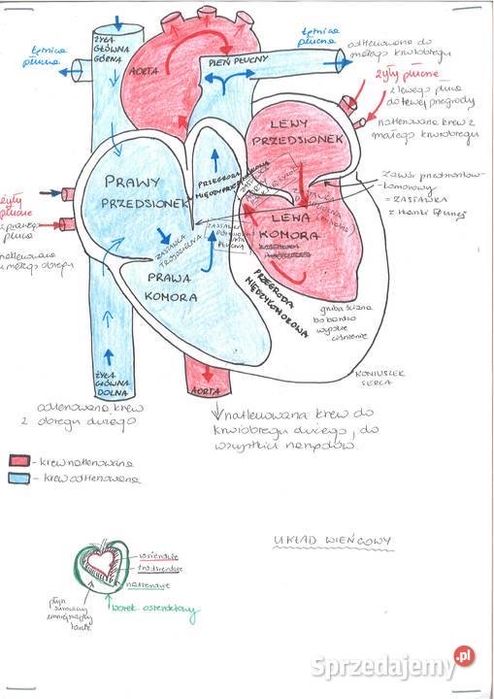 tętnica
płucna
ŻYŁA
GŁÓWNA
GÓRNA
AORTA
PIEŃ PŁUCNY
tętnica
płucna
odtlenowana do
małego krwiobiegu
żyły płucne
z lewego płuca
do lewej przegrody
natlenowana krew z
małego krwiobiegu
LEWY
PRZEDSIONEK
PRAWY
PRZEDSIONEK
PRZEGRODA
MIĘDZYPRZEDSIONKOWA
Zawór przedsionkowo-
komorowy
= ZASTAWKA
LEWA
KOMORA
żyły
płucne
z prawego
płuca
natlenowana
z małego obiegu
ZASTAWKA
TRÓJDZIELNA
ZASTAWKA
PRAWA
KOMORA
PRZEGRODA
MIĘDZYKOMOROWA
gruba ściana
bo bardzo
wysokie
ciśnienie
KONIUSZEK
SERCA
ŻYŁA
GŁÓWNA
DOLNA
AORTA
odtlenowana krew
z obiegu dużego
natlenowana krew do
krwiobiegu dużego, do
wszystkich narządów
- krew natlenowana
- krew odtlenowana
UKŁAD WIEŃCOWY
wsierdzie
śródsierdzie
nasierdzie
płyn
surowiczy
zmniejszający
tarcie
worek osierdziowy
Sprzedajemy.pl